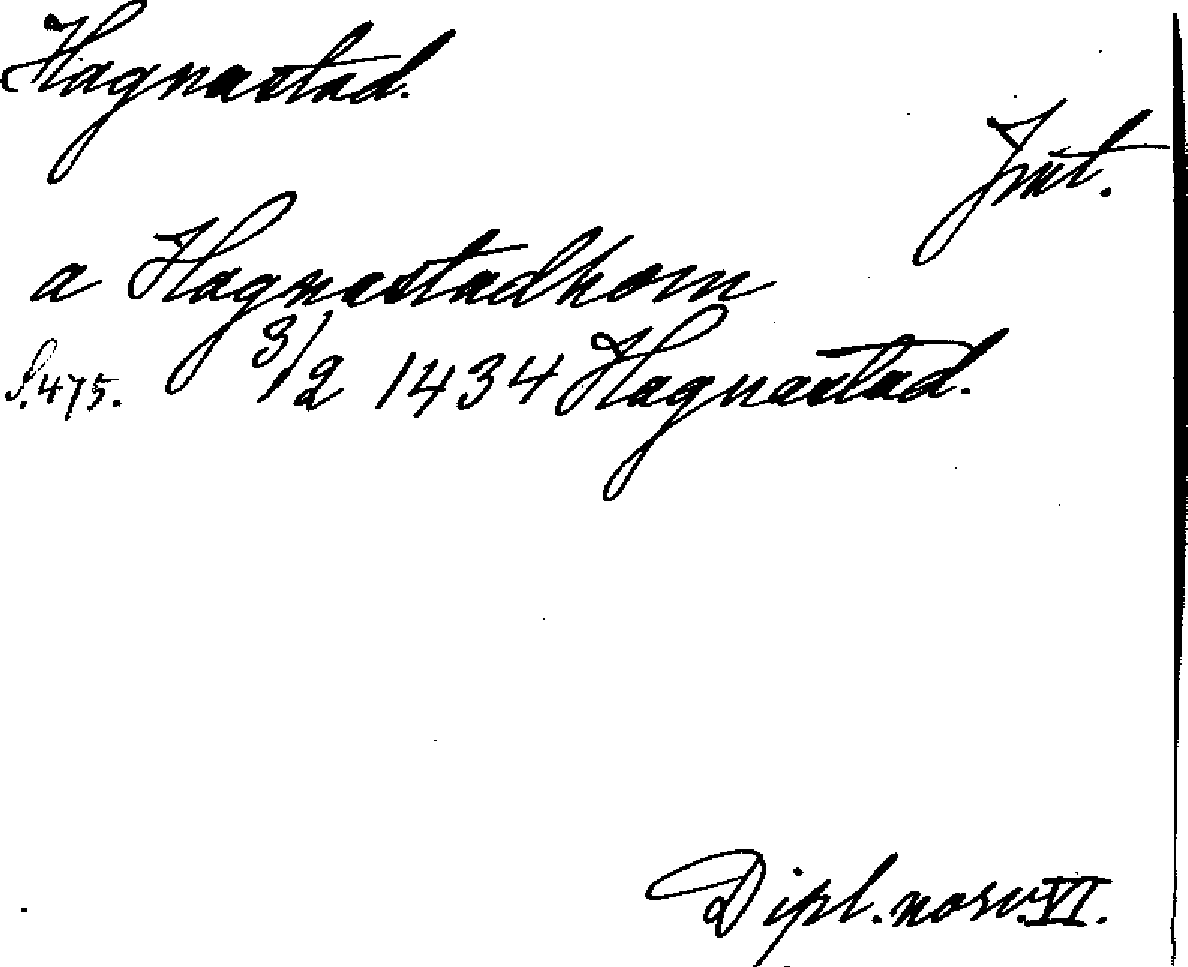 Hagnastad.
Jmt.
a Hagnastadhom
S. 475. 3/2 1434 Hagnastad.
Dipl. norv. VI.